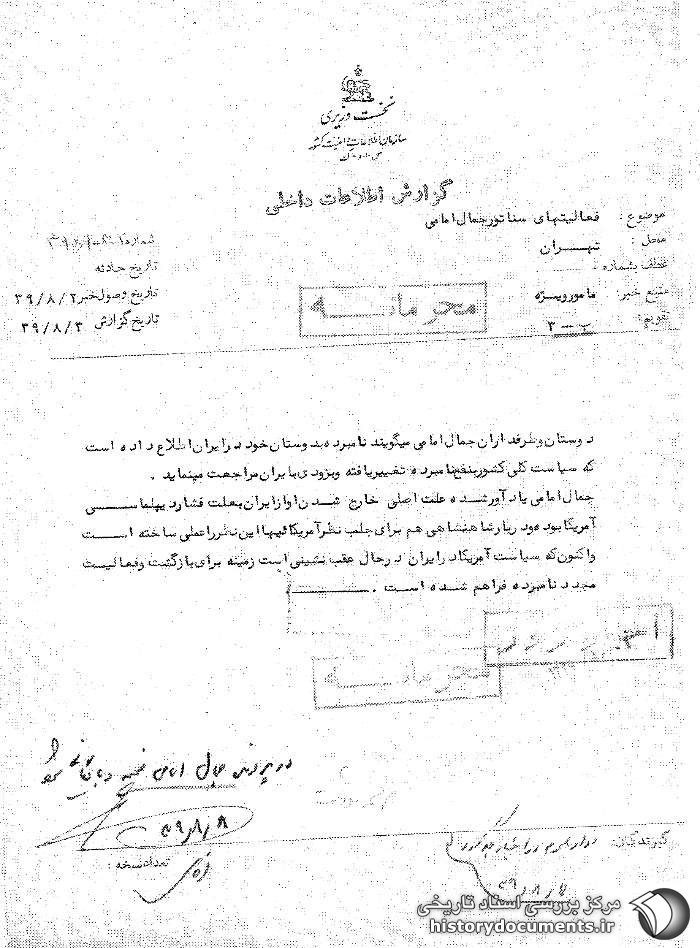 نخست وزیری
سازمان اطلاعات و امنیت کشور
گزارش اطلاعات داخلی
موضوع : فعالیتهای سناتور جمال امامی
محل : تهران
عطف بشماره :
منبع خبر : مامور ویژه
تقویم : ب - ۳
شماره
تاریخ حادثه
تاریخ وصول خبر ۳۹/۸/۲
تاریخ گزارش ۳۹/۸/۳
محرمانه
دوستان و طرفداران جمال امامی میگویند نامبرده بدوستان خود در ایران اطلاع داده است
که سیاست کلی کشور بنفع نامبرده تغییر یافته و بزودی بایران مراجعت مینماید .
جمال امامی یادآور شده علت اصلی خارج شدن او از ایران بعلت فشار دیپلماسی
آمریکا بوده و دربار شاهنشاهی هم برای جلب نظر آمریکائیها این نظر را عملی ساخته است
و اکنون که سیاست آمریکا در ایران در حال عقب نشینی است زمینه برای بازگشت و فعالیت
مجدد نامبرده فراهم شده است .
محرمانه
در پرونده جمال امامی ضمیمه و بایگانی شود
۳۹/۸/۸
تعداد نسخه :
گیرندگان :
مرکز بررسی اسناد تاریخی
historydocuments.ir